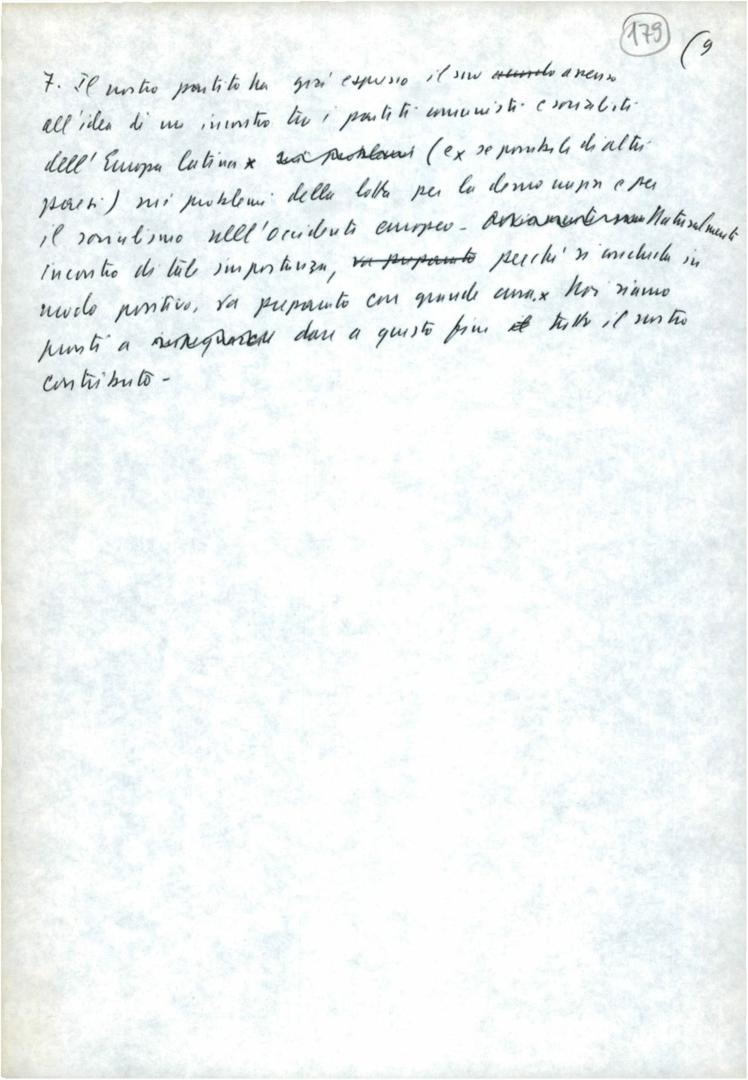 179 (9
7. Il nostro partito ha già espresso il suo assenso
all'idea di un incontro tra i partiti comunisti e socialisti
dell'Europa latina x sui problemi (e x se possibile di altri
paesi) sui problemi della lotta per la democrazia e per
il socialismo nell'occidente europeo - Naturalmente
incontro di tale importanza, va preparato perché si concluda in
modo positivo, va preparato con grande cura. x Noi siamo
pronti a dare a questo fine il tutto il nostro
contributo -